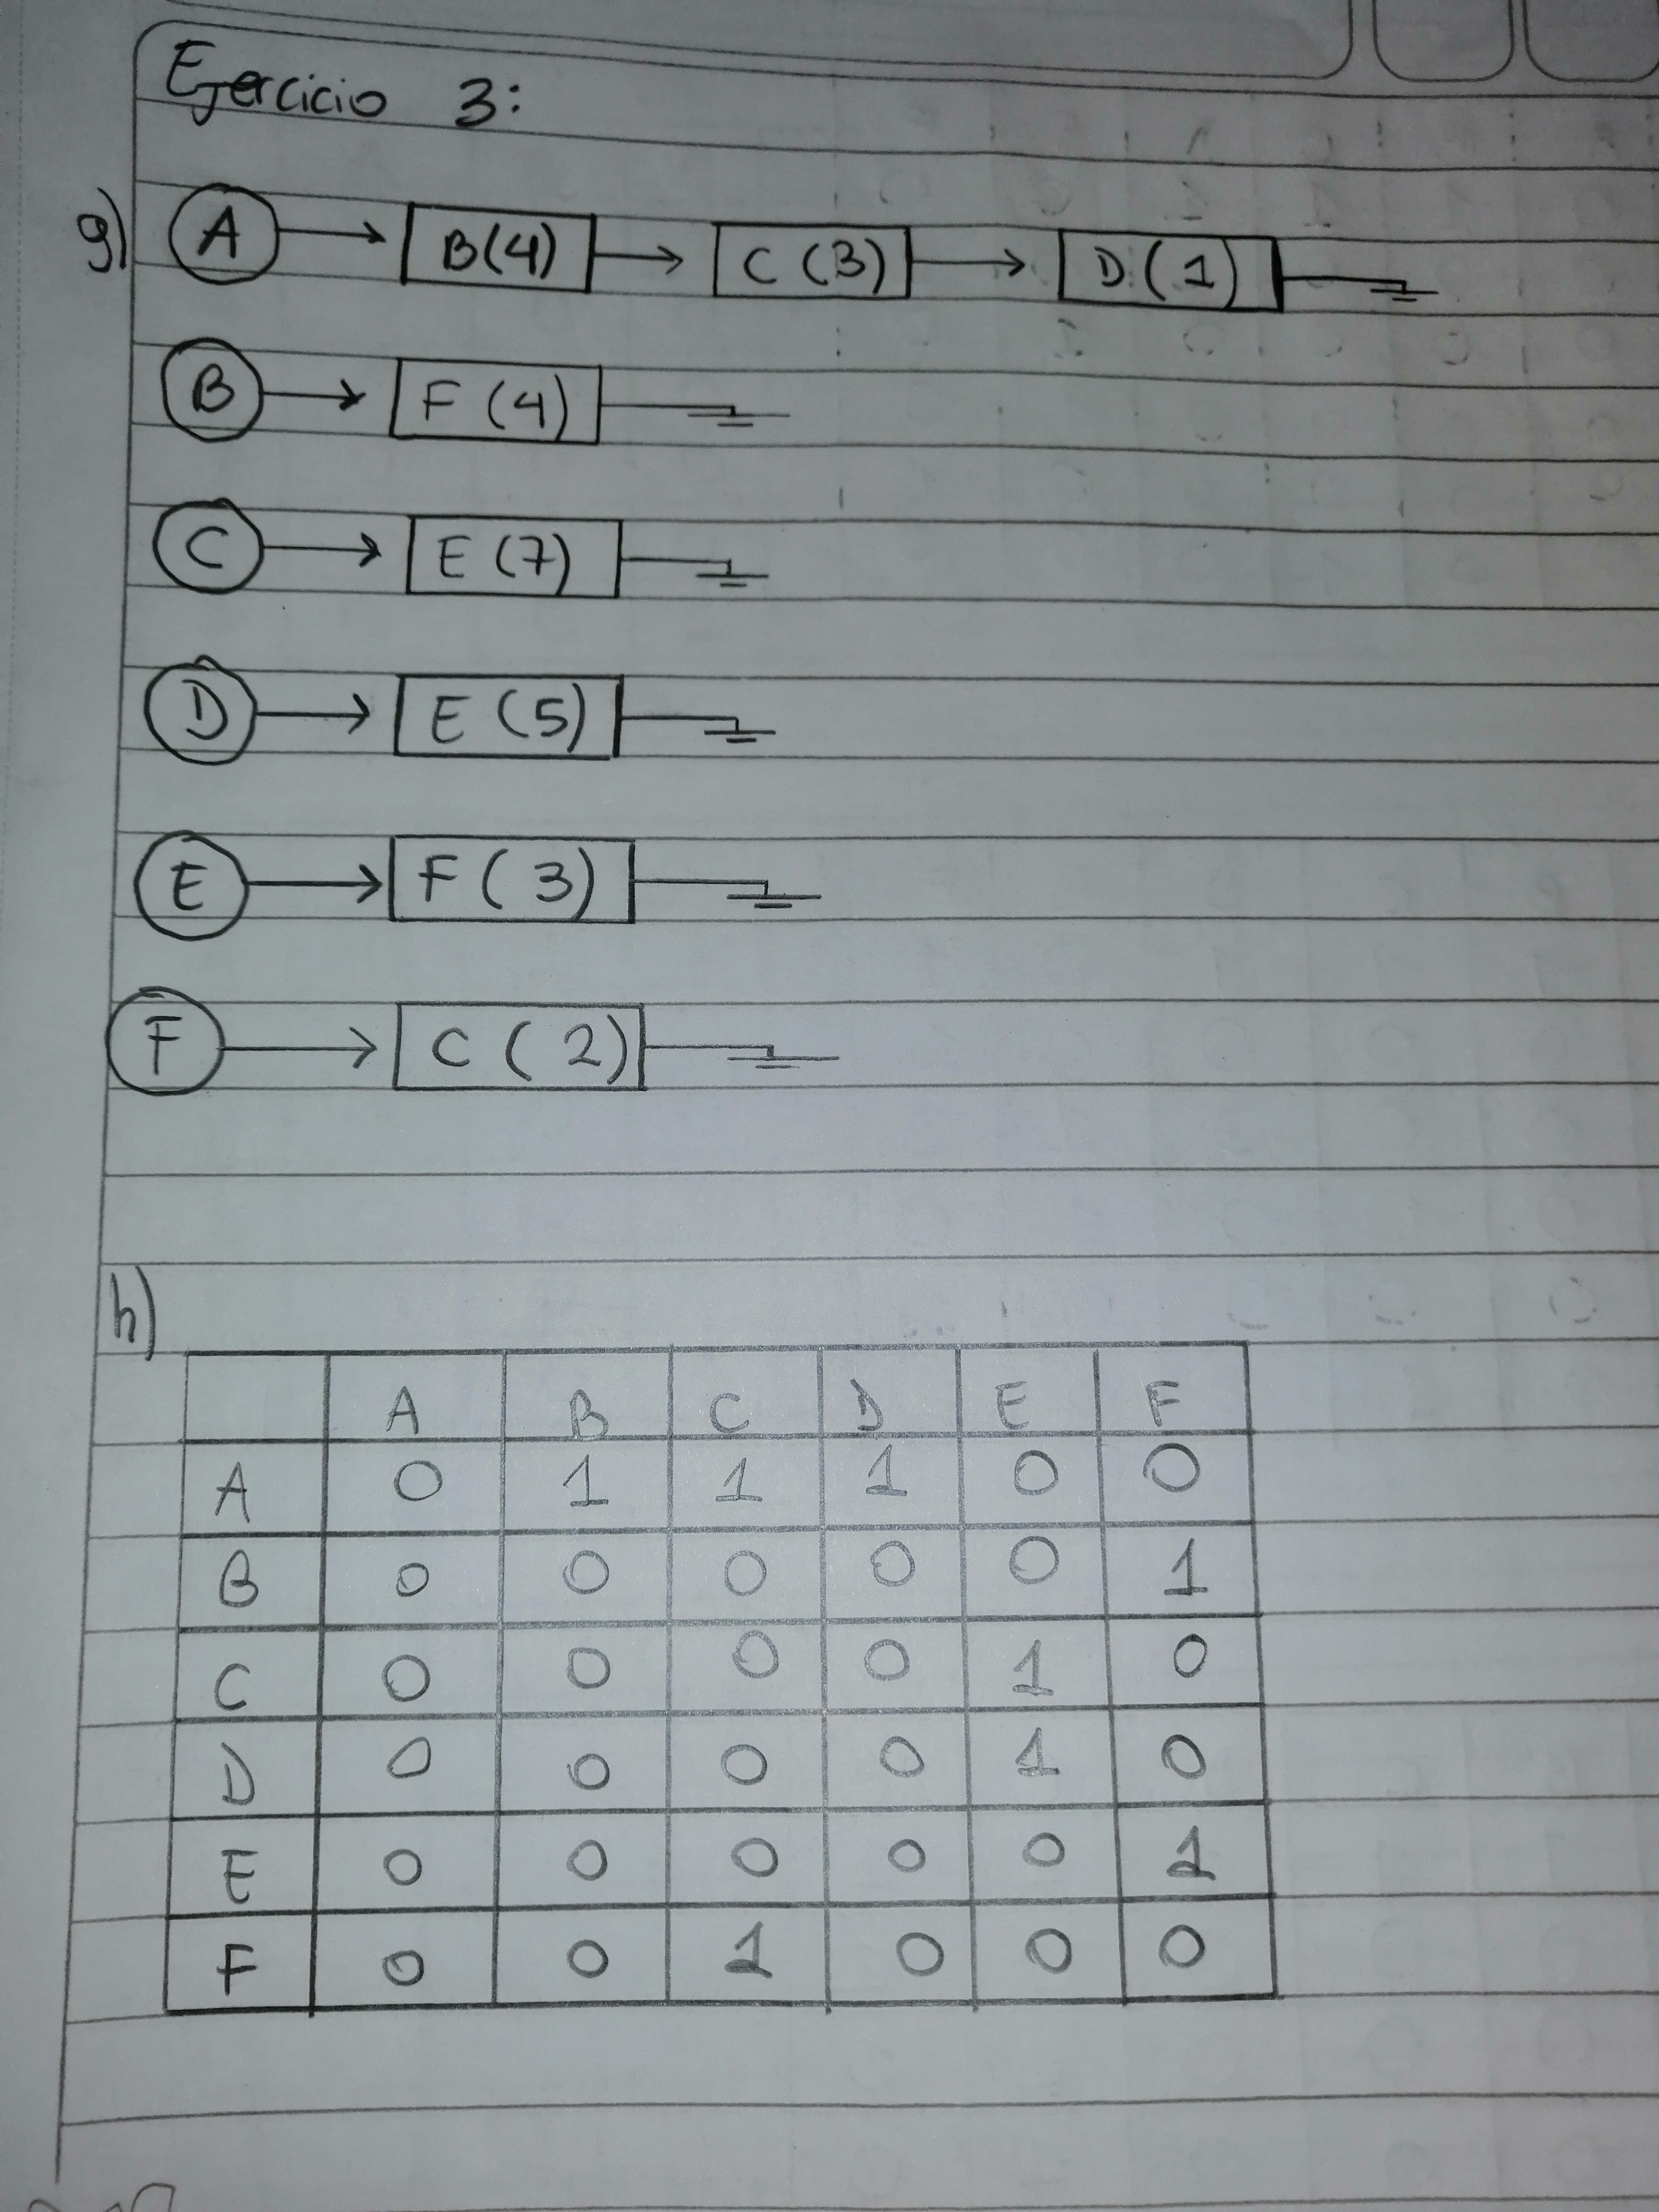 Ejercicio 3:
g) A B(4) C(3) D(1)
B F(4)
C E(7)
D E(5)
E F(3)
F C(2)
h)
A B C D E F
A 0 1 1 1 0 0
B 0 0 0 0 0 1
C 0 0 0 0 1 0
D 0 0 0 0 1 0
E 0 0 0 0 0 1
F 0 0 1 0 0 0